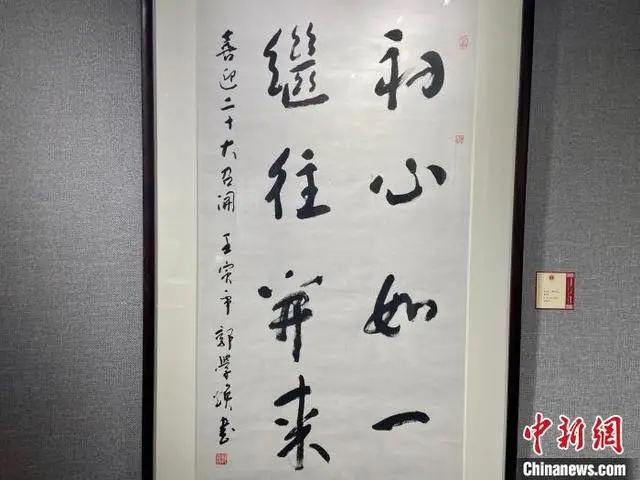 初心如一
繼往開来
喜迎二十大召開 壬寅年 郭學焕書
中新网
Chinanews.com